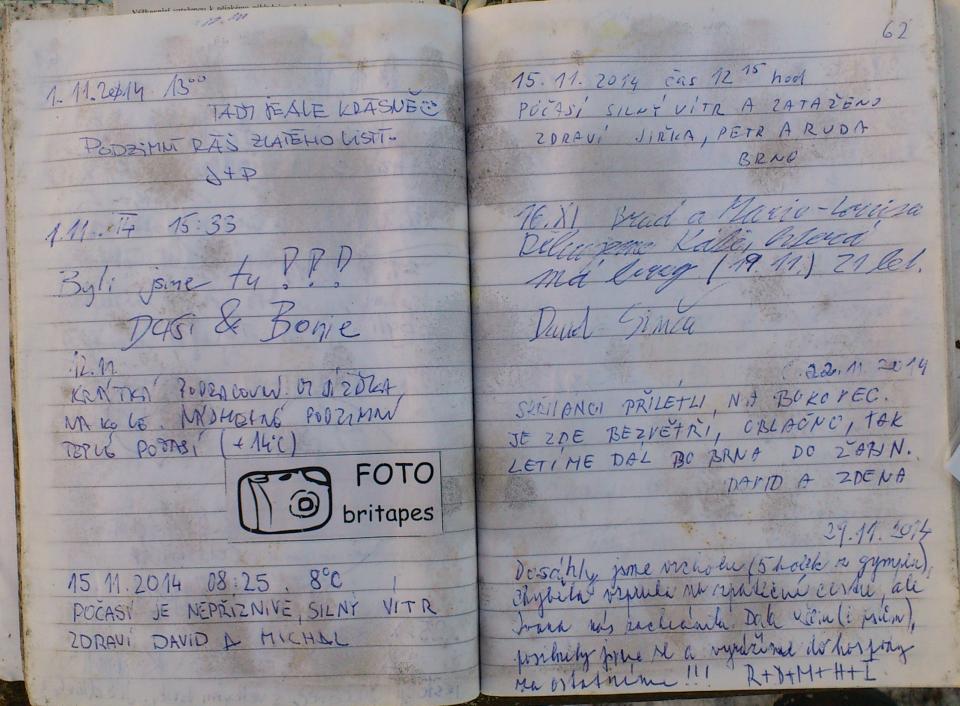 1. 11. 2014 13⁰⁰
TADY JE ALE KRÁSNĚ ☺
PODZIMNÍ RÁŠ ZLATÉHO LISTÍ.
J+P
1. 11. 14 15:33
Byli jsme tu !!!
DASI & Bonie
12. 11.
KRÁTKÁ
NA KOLE. NÁDHERNÉ PODZIMNÍ
TEPLÉ POČASÍ (+14°C)
FOTO
britapes
15.11.2014 08:25. 8°C
POČASÍ JE NEPŘÍZNIVÉ, SILNÝ VÍTR
ZDRAVÍ DAVID A MICHAL
62
15. 11. 2014 čas 12 15 hod
POČASÍ SILNÝ VÍTR A ZATAŽENO
ZDRAVÍ JIRKA, PETR A RUDA
BRNO
16. XI Brad a Marie-Louisa
Děkujeme
má (19. 11.) 21 let.
David
22. 11. 2014
PŘILETLI, NA BUKOVEC.
JE ZDE BEZVĚTŘÍ, OBLAČNO, TAK
LETÍME DÁL DO BRNA DO ŽABIN.
DAVID A ZDENA
29. 11. 2014
Dosáhly jsme vrcholu (5 holek z gymplu),
chyběla na zpáteční cestu, ale
Ivana nás zachránila. Dala
jsme se a vyrážíme do hospody
za ostatníma !!! R+D+M+H+I